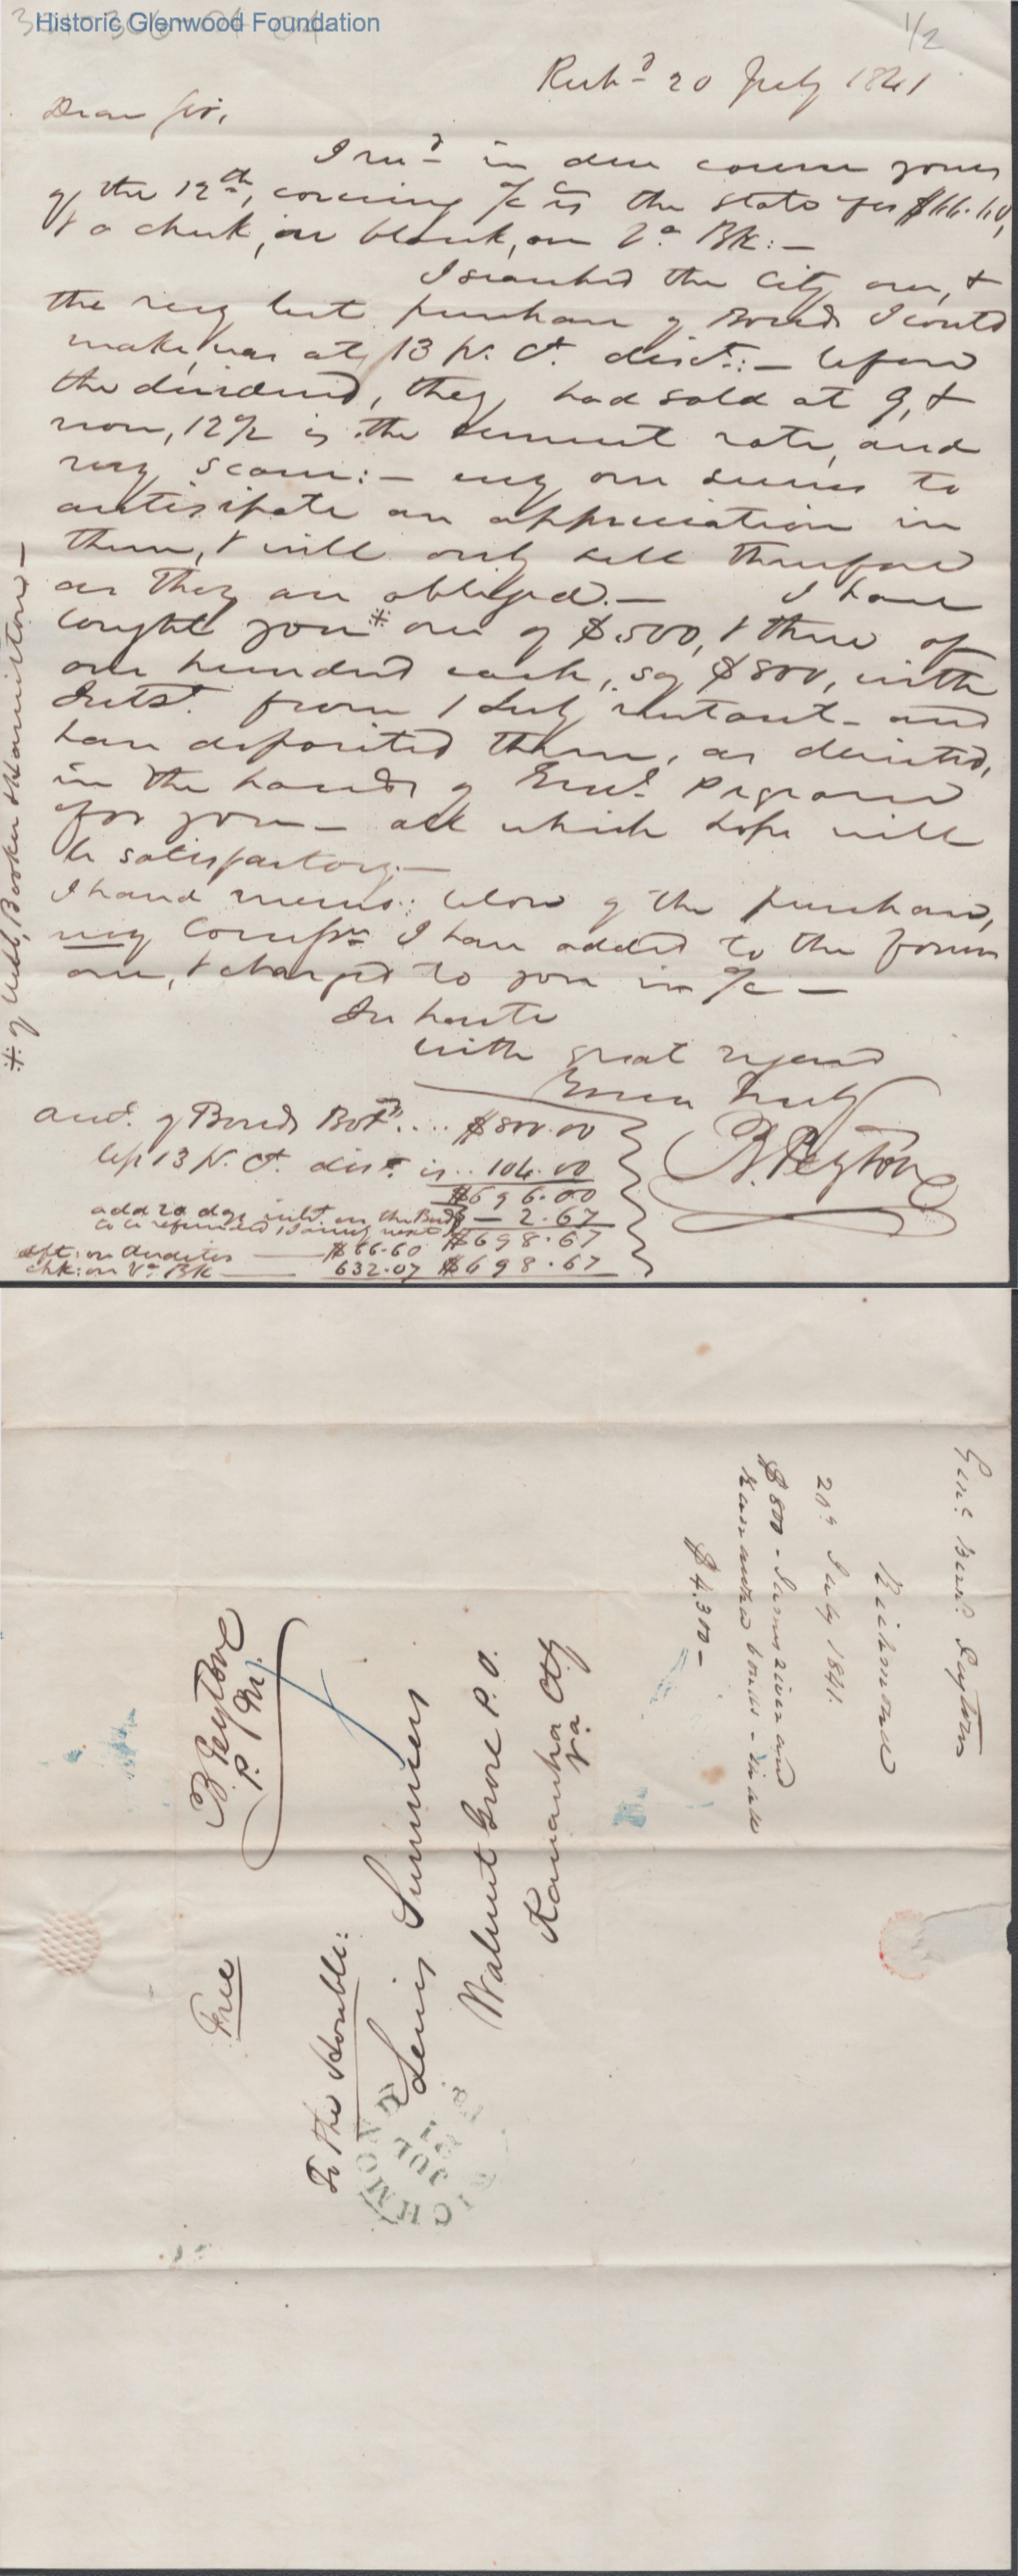 Historic Glenwood Foundation
1/2
Rich.d 20 July 1841
Dear Sir,
I rec.d in due course yours
of the 12th, covering a/c vs the State for $66.60,
& a check, in blank, on Va. Bk: —
I searched the City over, &
the very best purchase of Bonds I could
make, was at 13 pr. Ct. disct.: — before
the dividend, they had sold at 9, &
now, 12½ is the current rate, and
very scarce: — every one seems to
anticipate an appreciation in
them, & will only sell therefore
as they are obliged. — I have
bought you * one of $500, & three of
one hundred each, say $800, with
Intst. from 1 July instant — and
have deposited them, as directed,
in the hands of
for you — all which hope will
be satisfactory. —
I hand memo: below of the purchase,
my I have added to the
one, & charged to you in a/c —
In haste
with great regard
Yours Truly
B. Peyton
* of Webb, Booker & Hamilton —
amt. of Bonds Bot. .... $800.00
less 13 pr. Ct. disct. is .. 104.00
$696.00
add 20 days intst. on the Bonds — 2.67
to be refunded 1 January next $698.67
dft: on Auditor — $66.60
chk: on Va. Bk — 632.07 $698.67
Genl. Bernd. Peyton
Richmond
20th July 1841.
$800 - James River and
Kanawha bonds - in all
$4.300 —
Free
B. Peyton
P. M.
To the Honble:
Lewis Summers
Walnut Grove P. O.
Kanawha Cty
Va.
RICHMOND
JUL
21